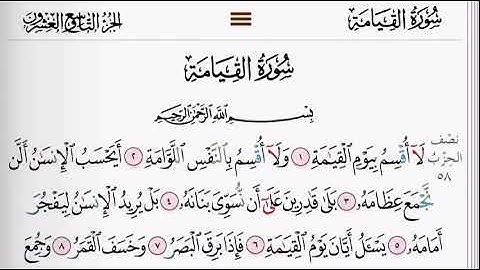 سُورَةُ القِيَامَةِ الجُزْءُ التَّاسِعُ وَالعِشْرُونَ
سُورَةُ القِيَامَةِ
بِسْمِ ٱللَّهِ ٱلرَّحْمَٰنِ ٱلرَّحِيمِ
نصف الحزب ٥٨
لَآ أُقْسِمُ بِيَوْمِ ٱلْقِيَٰمَةِ ١ وَلَآ أُقْسِمُ بِٱلنَّفْسِ ٱللَّوَّامَةِ ٢ أَيَحْسَبُ ٱلْإِنسَٰنُ أَلَّن
نَّجْمَعَ عِظَامَهُۥ ٣ بَلَىٰ قَٰدِرِينَ عَلَىٰٓ أَن نُّسَوِّىَ بَنَانَهُۥ ٤ بَلْ يُرِيدُ ٱلْإِنسَٰنُ لِيَفْجُرَ
أَمَامَهُۥ ٥ يَسْـَٔلُ أَيَّانَ يَوْمُ ٱلْقِيَٰمَةِ ٦ فَإِذَا بَرِقَ ٱلْبَصَرُ ٧ وَخَسَفَ ٱلْقَمَرُ ٨ وَجُمِعَ